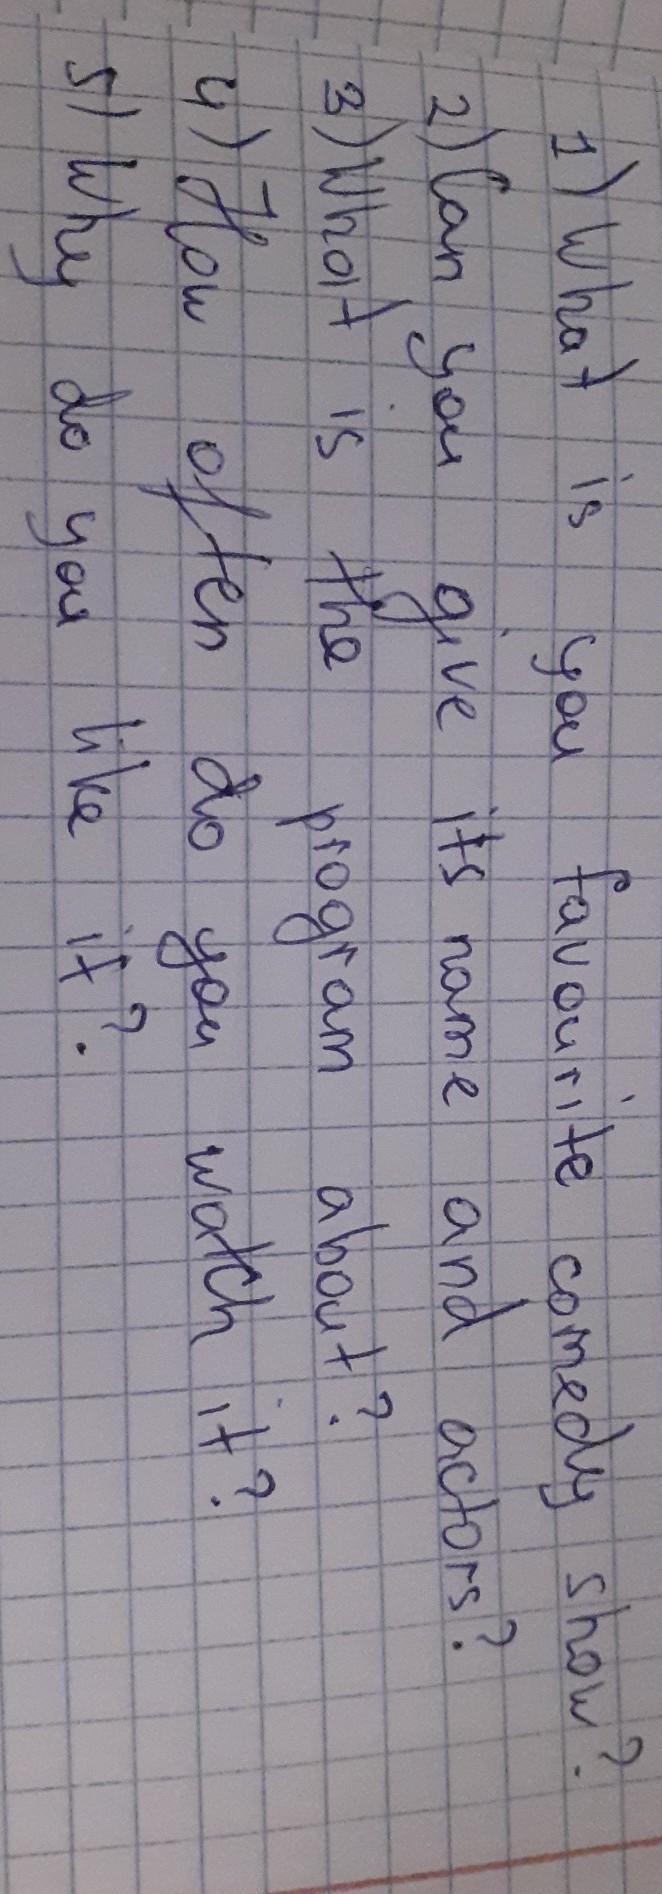 1) What is you favourite comedy show?
2) Can you give its name and actors?
3) What is the program about?
4) How often do you watch it?
5) Why do you like it?